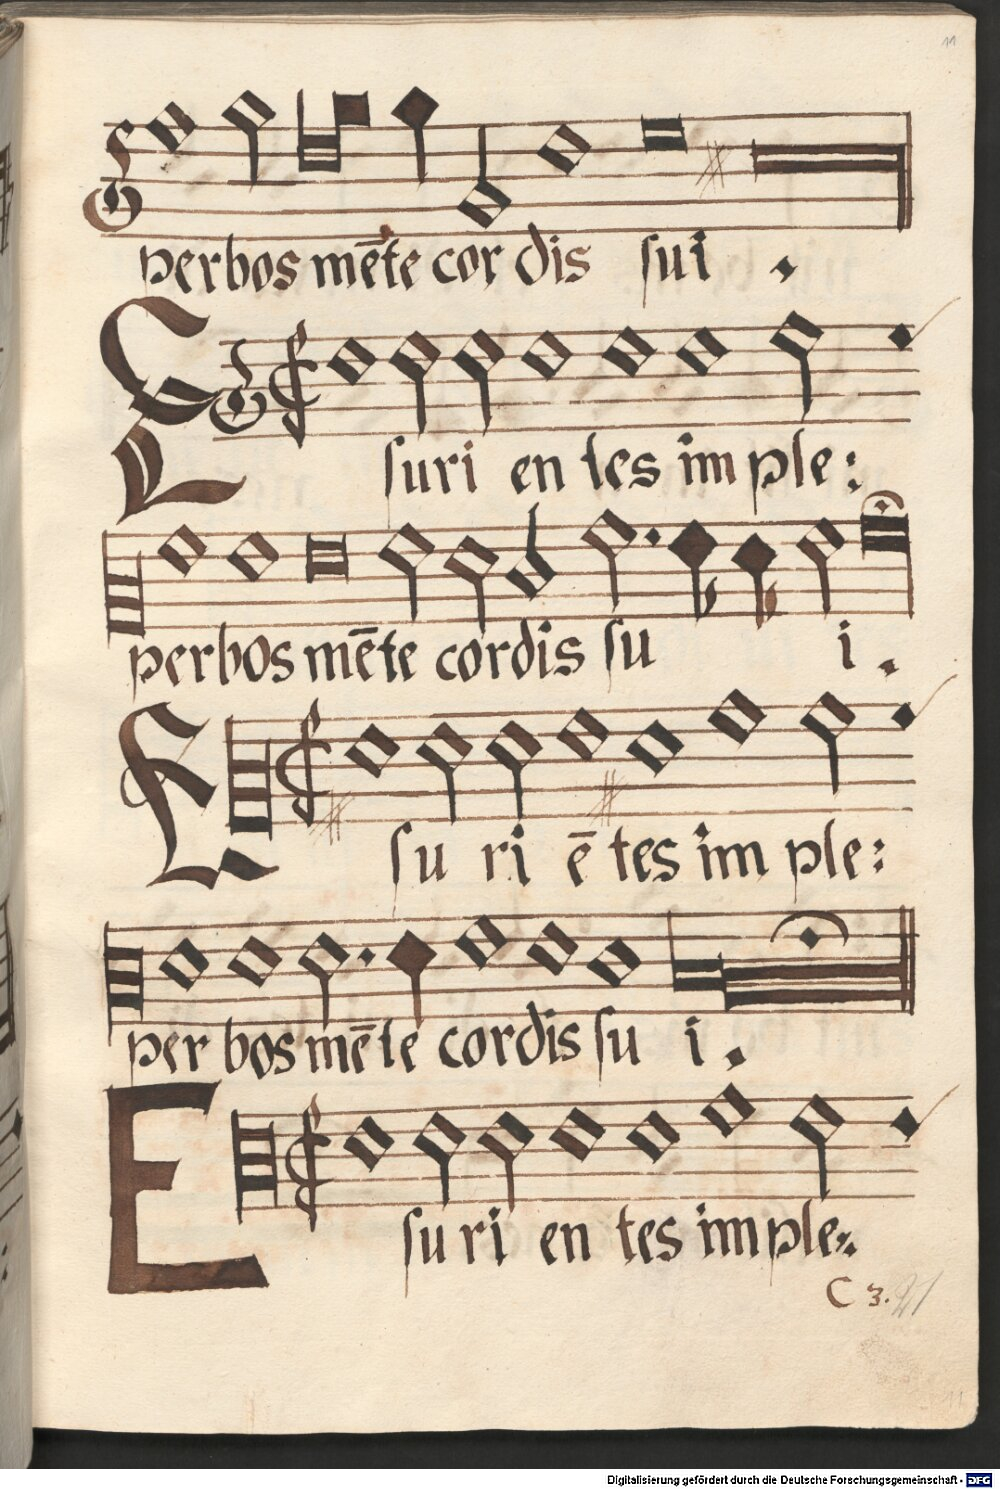 11
perbos mēte cor dis sui .
E suri en tes im ple :
perbos mēte cordis su i .
E su ri ē tes im ple :
per bos mēte cordis su i .
E su ri en tes im ple :
C 3. 21
11
Digitalisierung gefördert durch die Deutsche Forschungsgemeinschaft - DFG